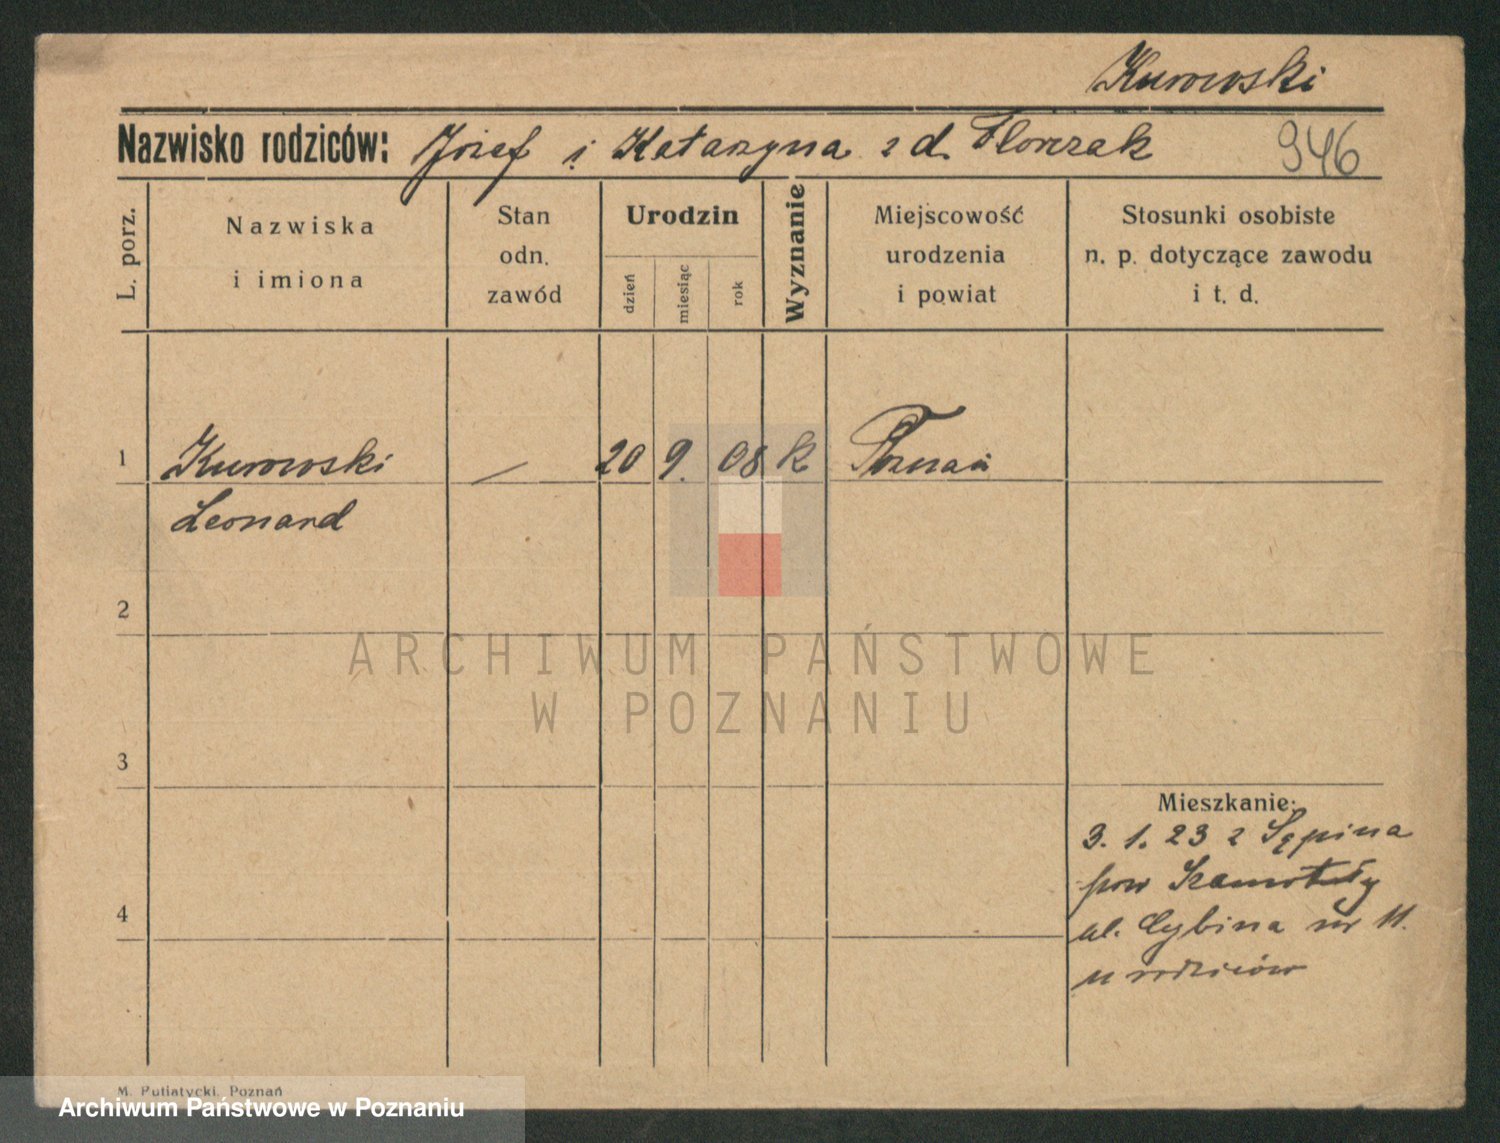 Kurowski
Nazwisko rodziców: Józef i Katarzyna z d. Florczak 946
L. porz.
Nazwiska
i imiona
Stan
odn.
zawód
Urodzin
dzień
miesiąc
rok
Wyznanie
Miejscowość
urodzenia
i powiat
Stosunki osobiste
n. p. dotyczące zawodu
i t. d.
1 Kurowski — 20 9. 08 k Poznań
Leonard
2
ARCHIWUM PAŃSTWOWE
W POZNANIU
3
Mieszkanie:
3. 1. 23 z Sępina
pow Szamotuły
ul. Cybina nr 11.
u rodziców
4
M. Putiatycki, Poznań
Archiwum Państwowe w Poznaniu